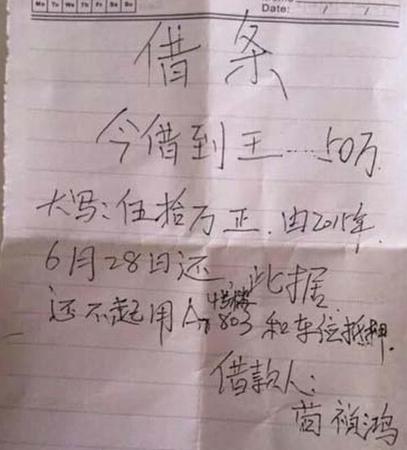 Mo Tu We Th Fr Sa Su
Date: / /
借条
今借到王…50万
大写:伍拾万正.由2015年.
6月28日还 此据
还不起用A 803和车位抵押.
借款人:
祯鸿